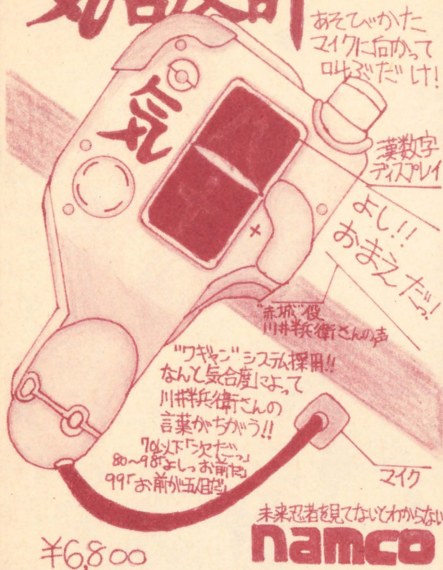 気合度計
あそびかた
マイクに向かって
叫ぶだけ!
漢数字
ディスプレイ
気
よし!!
おまえだっ!
"赤城"役
川井半兵衛さんの声
"ワギャン"システム採用!!
なんと気合度によって
川井半兵衛さんの
言葉がちがう!!
70以下「次だ
80〜98「よしっお前だ」
99「お前が五目だ」
マイク
未来忍者を見てないとわからない
namco
¥6,800